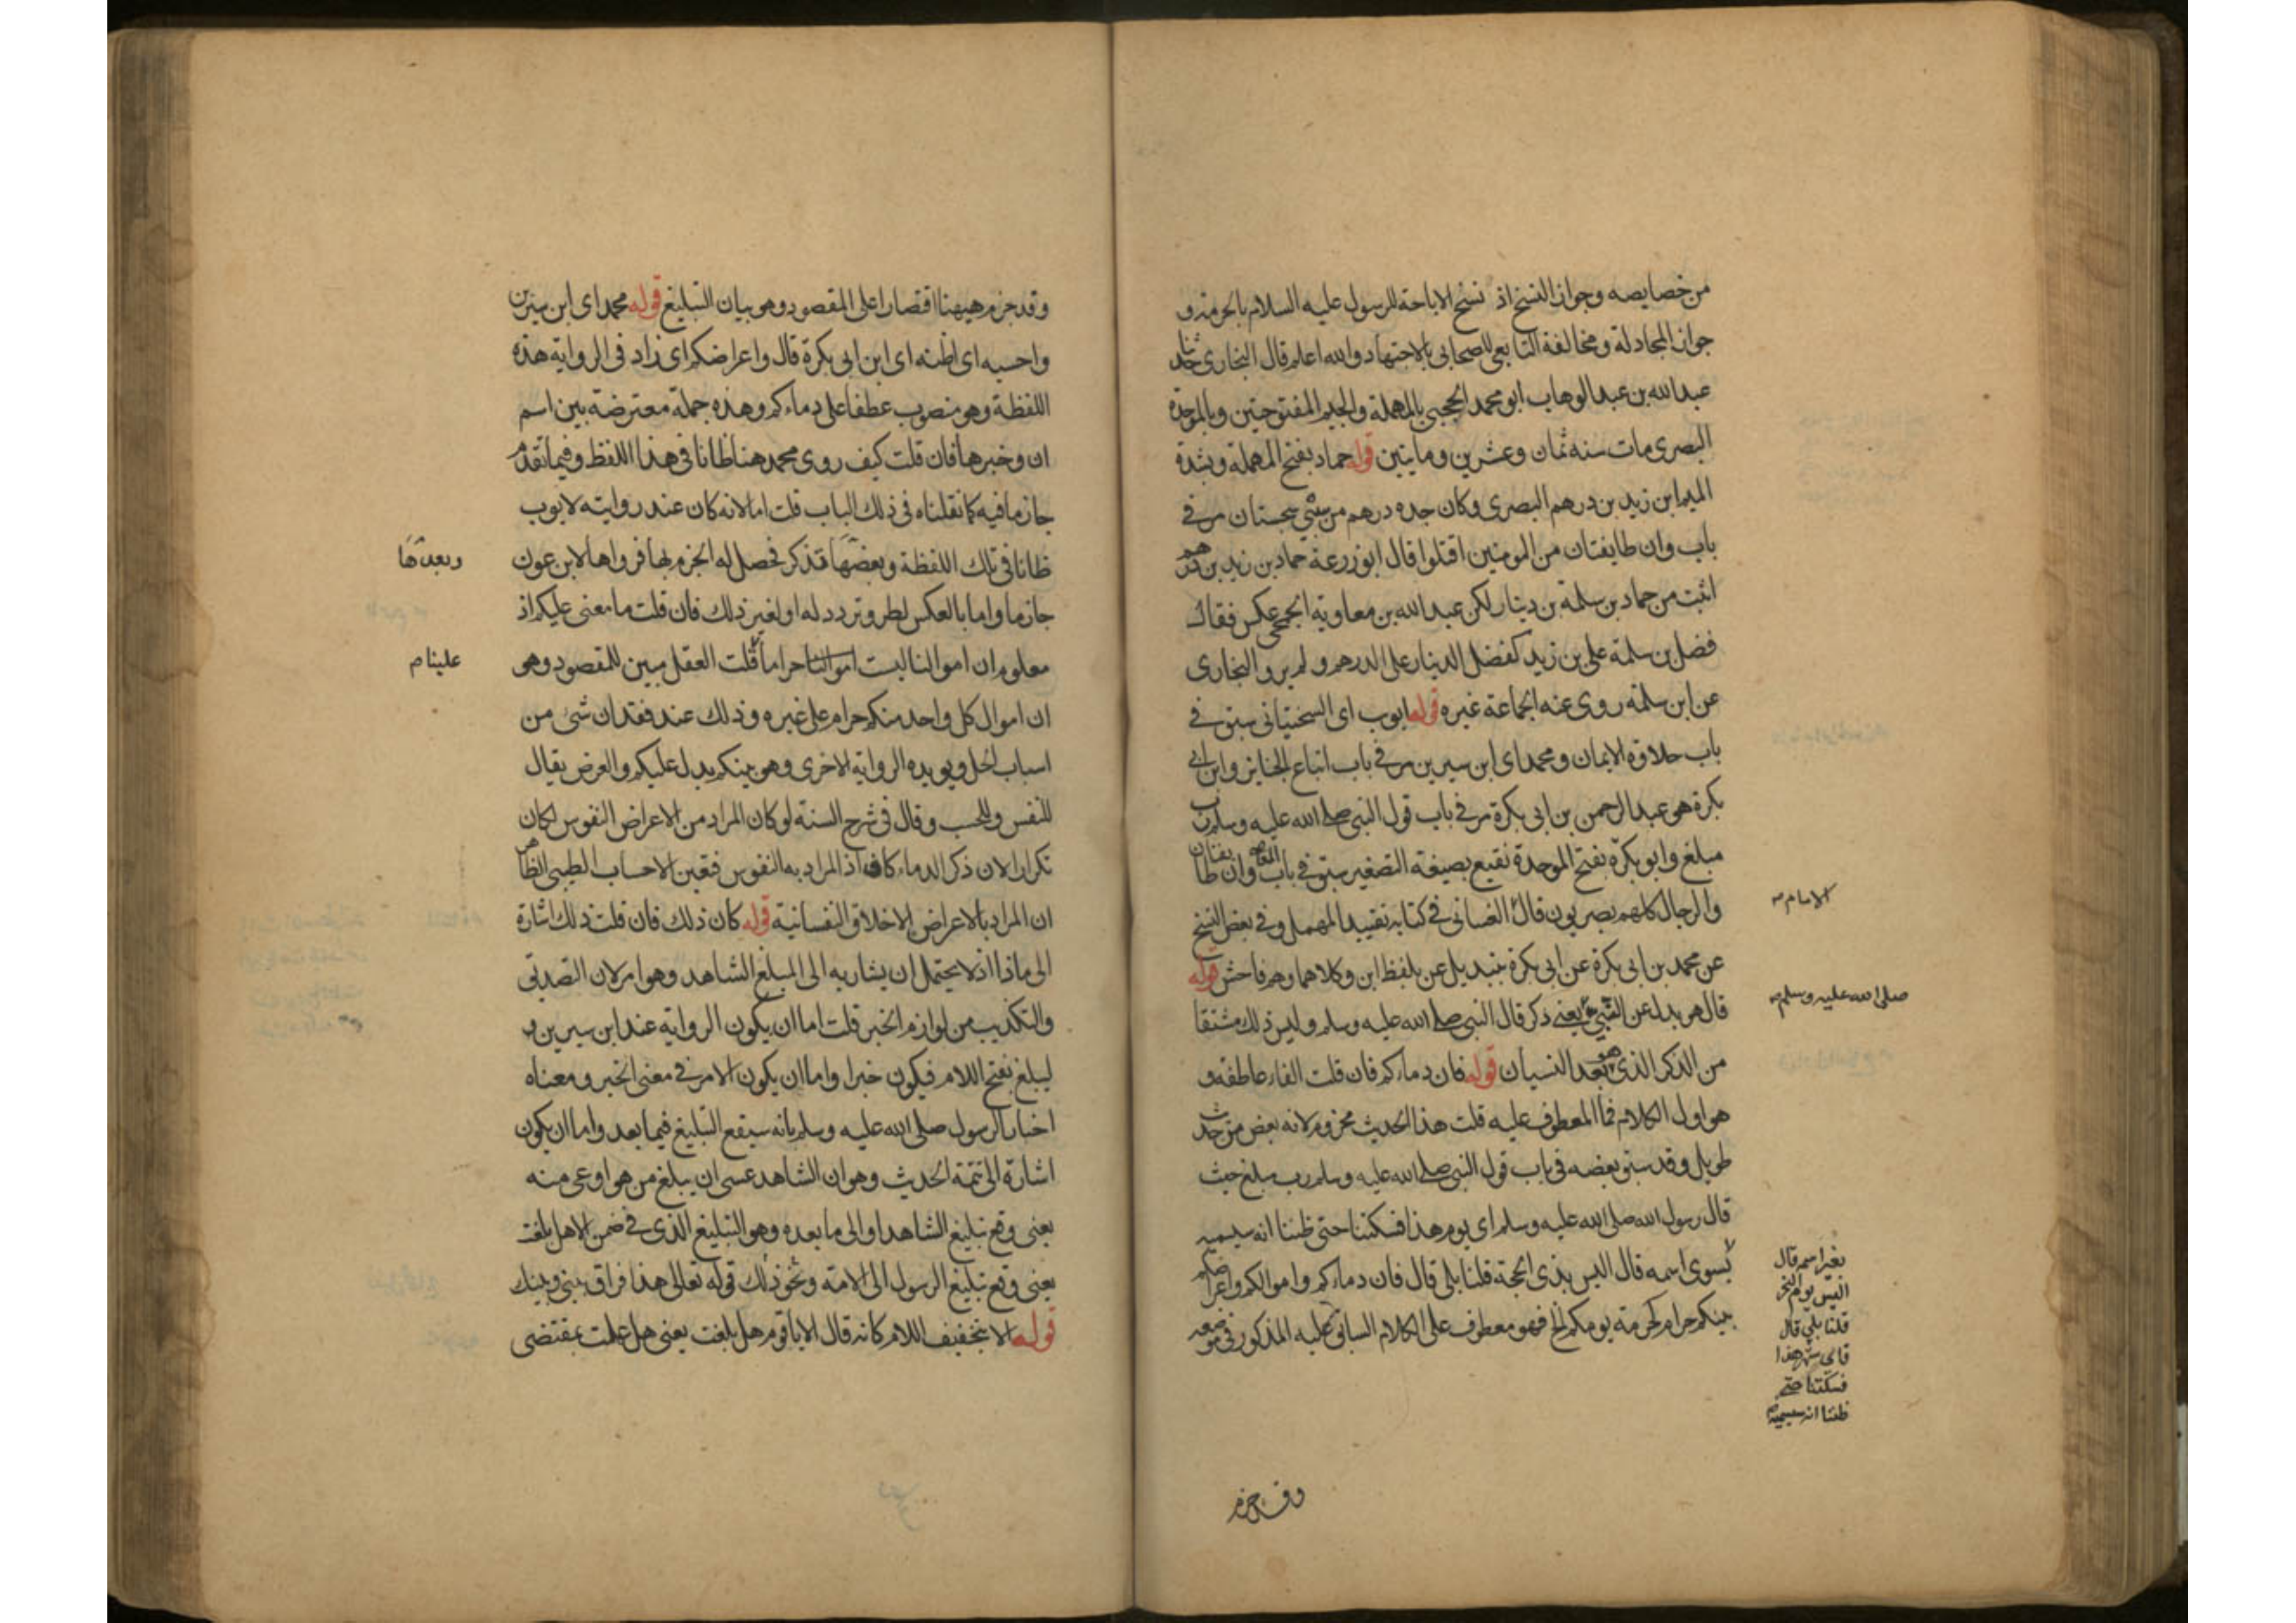 من خصايصه وجواز النسخ اذ نسخ الاباحة للرسول عليه السلام بالحرمة و
جواز المجادلة ومخالفة التابعي للصحابي بالاجتهاد والله اعلم قال البخاري حدثنا
عبد الله بن عبد الوهاب ابو محمد الحجبي بالمهملة والجيم المفتوحتين وبالموحدة
البصري مات سنه ثمان وعشرين ومايتين قوله حماد بفتح المهملة وشدة
الميم ابن زيد بن درهم البصري وكان جده درهم من سبي سجستان مر في
باب وان طايفتان من المومنين اقتتلوا قال ابو زرعة حماد بن زيد بن درهم
اثبت من حماد بن سلمة بن دينار لكن عبد الله بن معاوية الجمحي عكس فقال
فضل بن سلمة على بن زيد كفضل الدينار على الدرهم ولم يرو البخاري
عن ابن سلمة روى عنه الجماعة غيره قوله ايوب اي السختياني سبق في
باب حلاوة الايمان ومحمد اي ابن سيرين مر في باب اتباع الجنايز وابن ابي
بكرة هو عبد الرحمن بن ابي بكرة مر في باب قول النبي صلى الله عليه وسلم رب
مبلغ وابو بكرة بفتح الموحدة نفيع بصيغة التصغير سبق في باب وان طايفتان
والرجال كلهم بصريون قال الغساني في كتابه تقييد المهمل وفي بعض النسخ
الامام
عن محمد بن ابي بكرة عن ابي بكرة بتبديل عن بلفظ ابن وكلاهما وهم فاحش قوله
قال هو بدل عن النبي يعني ذكر قال النبي صلى الله عليه وسلم وليس ذلك مشتقا
صلى الله عليه وسلم
من الذكر الذي هو بعد النسيان قوله فان دماءكم فان قلت الفاء عاطفة و
هو اول الكلام فما المعطوف عليه قلت هذا الحديث مخزوم لانه بعض من حديث
طويل وقد سبق بعضه في باب قول النبي صلى الله عليه وسلم رب مبلغ حيث
قال رسول الله صلى الله عليه وسلم اي يوم هذا فسكتنا حتى ظننا انه سيسميه
بسوى اسمه قال اليس بذي الحجة قلنا بلى قال فان دماءكم واموالكم واعراضكم
بينكم حرام كحرمة يومكم الخ فهو معطوف على الكلام السابق عليه المذكور في موضعه
بغير اسمه قال
اليس يوم النحر
قلنا بلى قال
فاي شهر هذا
فسكتنا حتى
ظننا انه سيسميه
وقد جزم
وقد جزم هيهنا اقتصارا على المقصود وهو بيان التبليغ قوله محمد اي ابن سيرين
واحسبه اي اظنه اي ابن ابي بكرة قال واعراضكم اي زاد في الرواية هذه
اللفظة وهو منصوب عطفا على دماءكم وهذه جملة معترضة بين اسم
ان وخبرها فان قلت كيف روى محمد هنا ظانا في هذا اللفظ وفيما تقدم
جازما فيه كما نقلناه في ذلك الباب قلت اما لانه كان عند روايته لايوب
ظانا في تلك اللفظة وبعضها تذكر فحصل له الجزم بها فرواها لابن عون
وبعدها
جازما واما بالعكس لطرو تردد له او لغير ذلك فان قلت ما معنى عليكم اذ
معلوم ان اموالنا ليست اموالنا حراما قلت العقل مبين للمقصود وهو
علينا
ان اموال كل واحد منكم حرام على غيره وذلك عند فقدان شئ من
اسباب الحل ويويده الرواية الاخرى وهو بينكم بدل عليكم والعرض يقال
للنفس وللحسب وقال في شرح السنة لو كان المراد من الاعراض النفوس لكان
تكرارا لان ذكر الدماء كاف اذ المراد به النفوس فتعين الاحساب الطيبي الظاهر
ان المراد بالاعراض الاخلاق النفسانية قوله كان ذلك فان قلت ذلك اشارة
الى ماذا اذ لا يحتمل ان يشار به الى المبلغ الشاهد وهو امر لان التصديق
والتكذيب من لوازم الخبر قلت اما ان يكون الرواية عند ابن سيرين
ليبلغ بفتح اللام فيكون خبرا واما ان يكون الامر في معنى الخبر ومعناه
اخبار الرسول صلى الله عليه وسلم بانه سيقع التبليغ فيما بعد واما ان يكون
اشارة الى تتمة الحديث وهو ان الشاهد عسى ان يبلغ من هو اوعى منه
يعني وقع تبليغ الشاهد او الى ما بعده وهو التبليغ الذي في ضمن الا هل بلغت
يعني وقع تبليغ الرسول الى الامة ونحو ذلك قوله تعالى هذا فراق بيني وبينك
قوله الا بتخفيف اللام كانه قال الا يا قوم هل بلغت يعني هل عملت بمقتضى